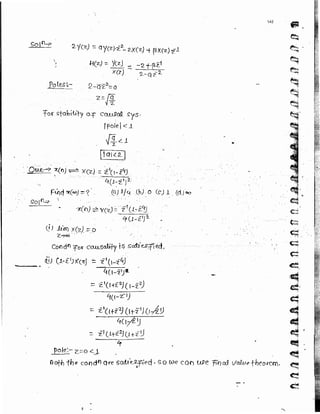 142
Soln⇒ 2Y(z) = αY(z)·z⁻² - 2X(z) + βX(z)z⁻¹
H(z) = Y(z)/X(z) = (-2+βz⁻¹)/(2-αz⁻²)
Poles:- 2-αz⁻²=0
z = √(α/2)
For stability of causal sys:
|Pole| < 1
√(α/2) < 1
|α| < 2
Que.→ x(n) ⇌ X(z) = z⁻¹(1-z⁻⁴)/4(1-z⁻¹)²
Find x(∞) = ? (a) 1/4 (b) 0 (c) 1 (d) ∞
Soln⇒ x(n) ⇌ X(z) = z⁻¹(1-z⁻⁴)/4(1-z⁻¹)²
(i) lim z→∞ X(z) = 0
Condn for causality is satisfied.
(ii) (1-z⁻¹)X(z) = z⁻¹(1-z⁻⁴)/4(1-z⁻¹)
= z⁻¹(1+z⁻²)(1-z⁻²)/4(1-z⁻¹)
= z⁻¹(1+z⁻²)(1+z⁻¹)(1-z⁻¹)/4(1-z⁻¹)
= z⁻¹(1+z⁻²)(1+z⁻¹)/4
Pole:- z=0 < 1
Both the condn are satisfied. So we can use Final value theorem.